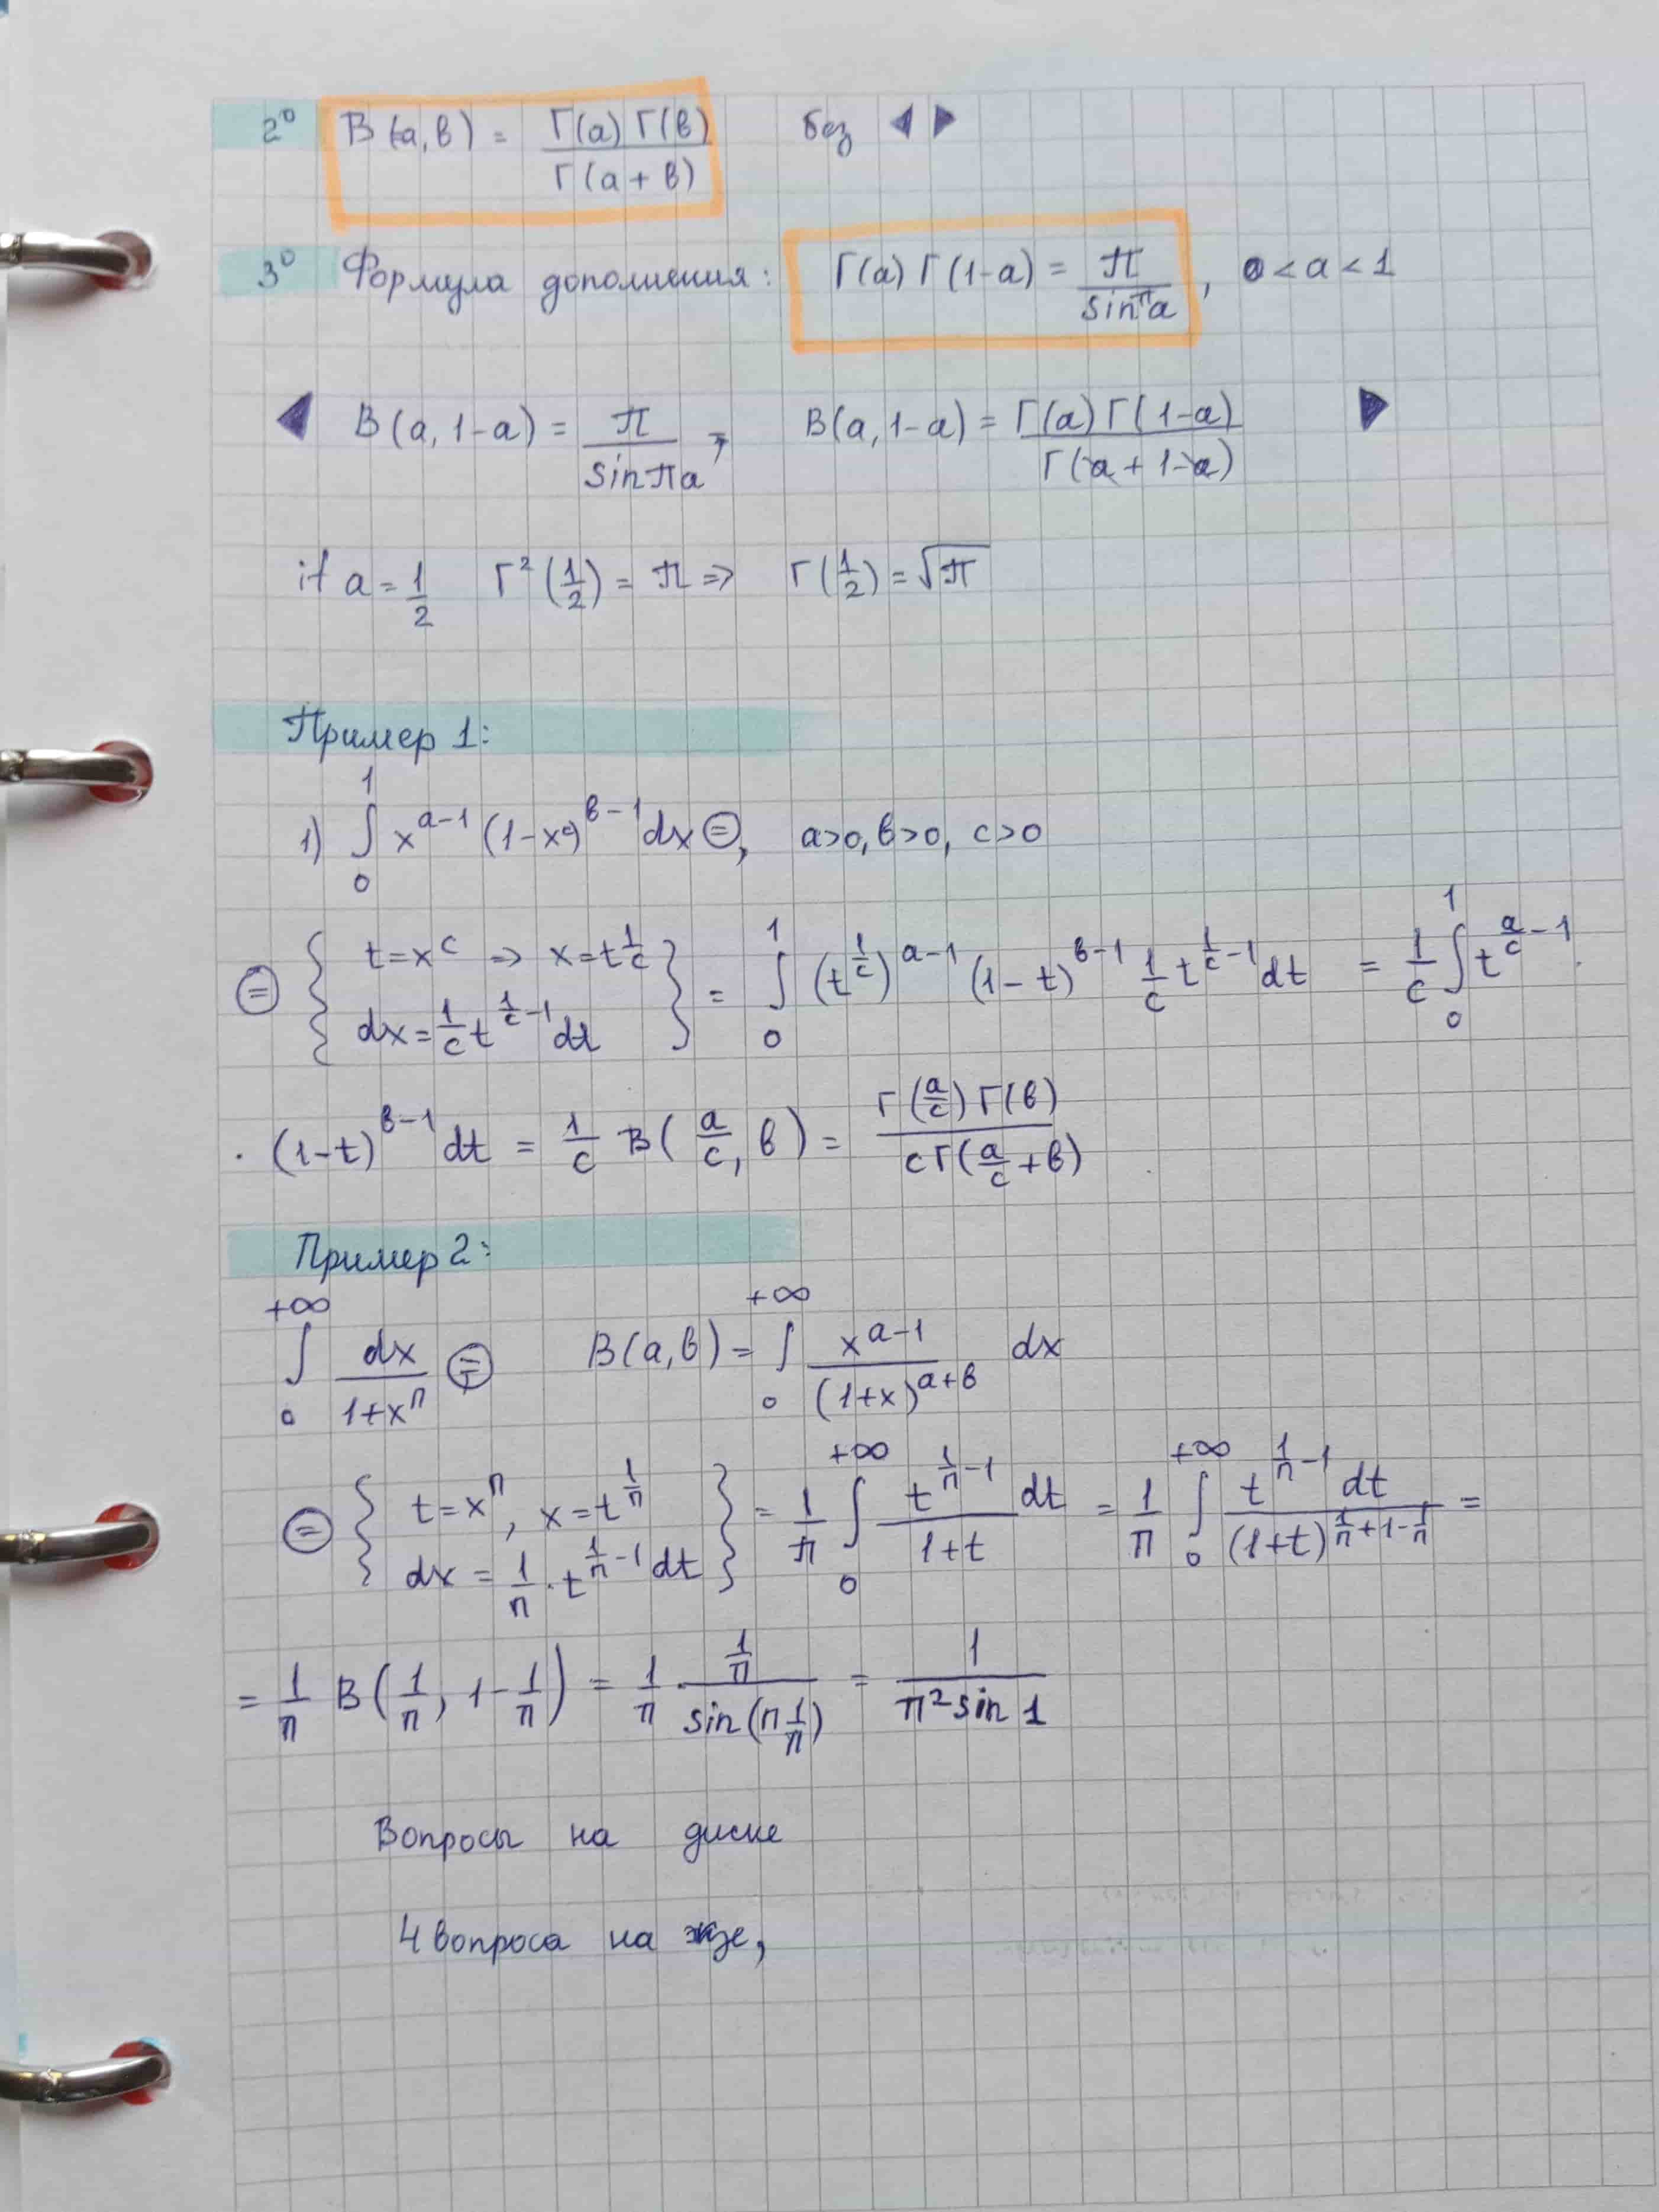 2° B(a,b) = Γ(a)Γ(b)/Γ(a+b) без ◀ ▶
3° Формула дополнения: Γ(a)Γ(1-a) = π/sinπa, 0<a<1
◀ B(a,1-a) = π/sinπa, B(a,1-a) = Γ(a)Γ(1-a)/Γ(a+1-a) ▶
if a = 1/2 Γ²(1/2) = π => Γ(1/2) = √π
Пример 1:
1) ∫₀¹ x^(a-1) (1-x^c)^(b-1) dx ⊜, a>0, b>0, c>0
⊜ { t=x^c => x=t^(1/c)
dx = 1/c t^(1/c-1) dt } = ∫₀¹ (t^(1/c))^(a-1) (1-t)^(b-1) 1/c t^(1/c-1) dt = 1/c ∫₀¹ t^(a/c-1) ·
· (1-t)^(b-1) dt = 1/c B(a/c, b) = Γ(a/c)Γ(b)/cΓ(a/c+b)
Пример 2:
∫₀^(+∞) dx/(1+x^n) ⊜ B(a,b) = ∫₀^(+∞) x^(a-1)/(1+x)^(a+b) dx
⊜ { t=x^n, x=t^(1/n)
dx = 1/n · t^(1/n-1) dt } = 1/n ∫₀^(+∞) t^(1/n-1)/(1+t) dt = 1/n ∫₀^(+∞) t^(1/n-1) dt/(1+t)^(1/n+1-1/n) =
= 1/n B(1/n, 1-1/n) = 1/n · (1/n)/sin(n 1/n) = 1/(n² sin 1)
Вопросы на диске
4 вопроса на экзе,